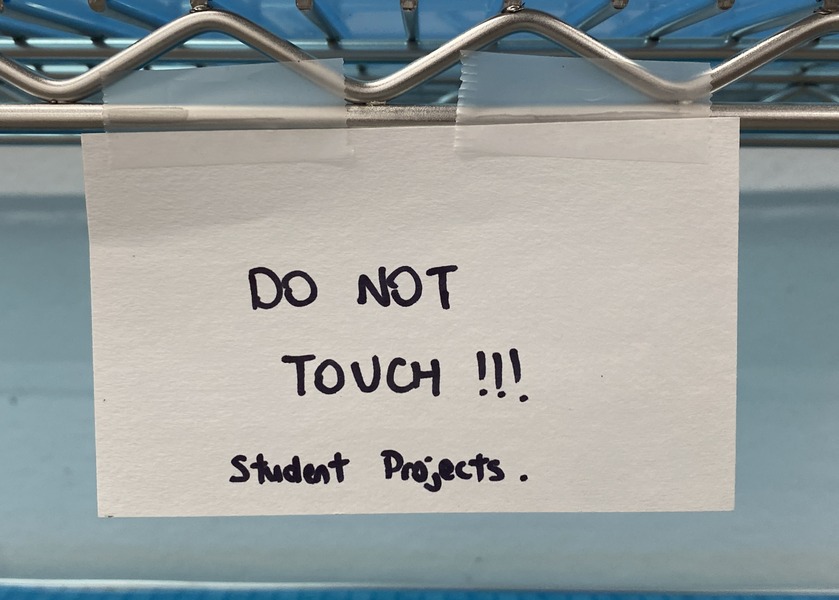 DO NOT
TOUCH !!!
Student Projects.